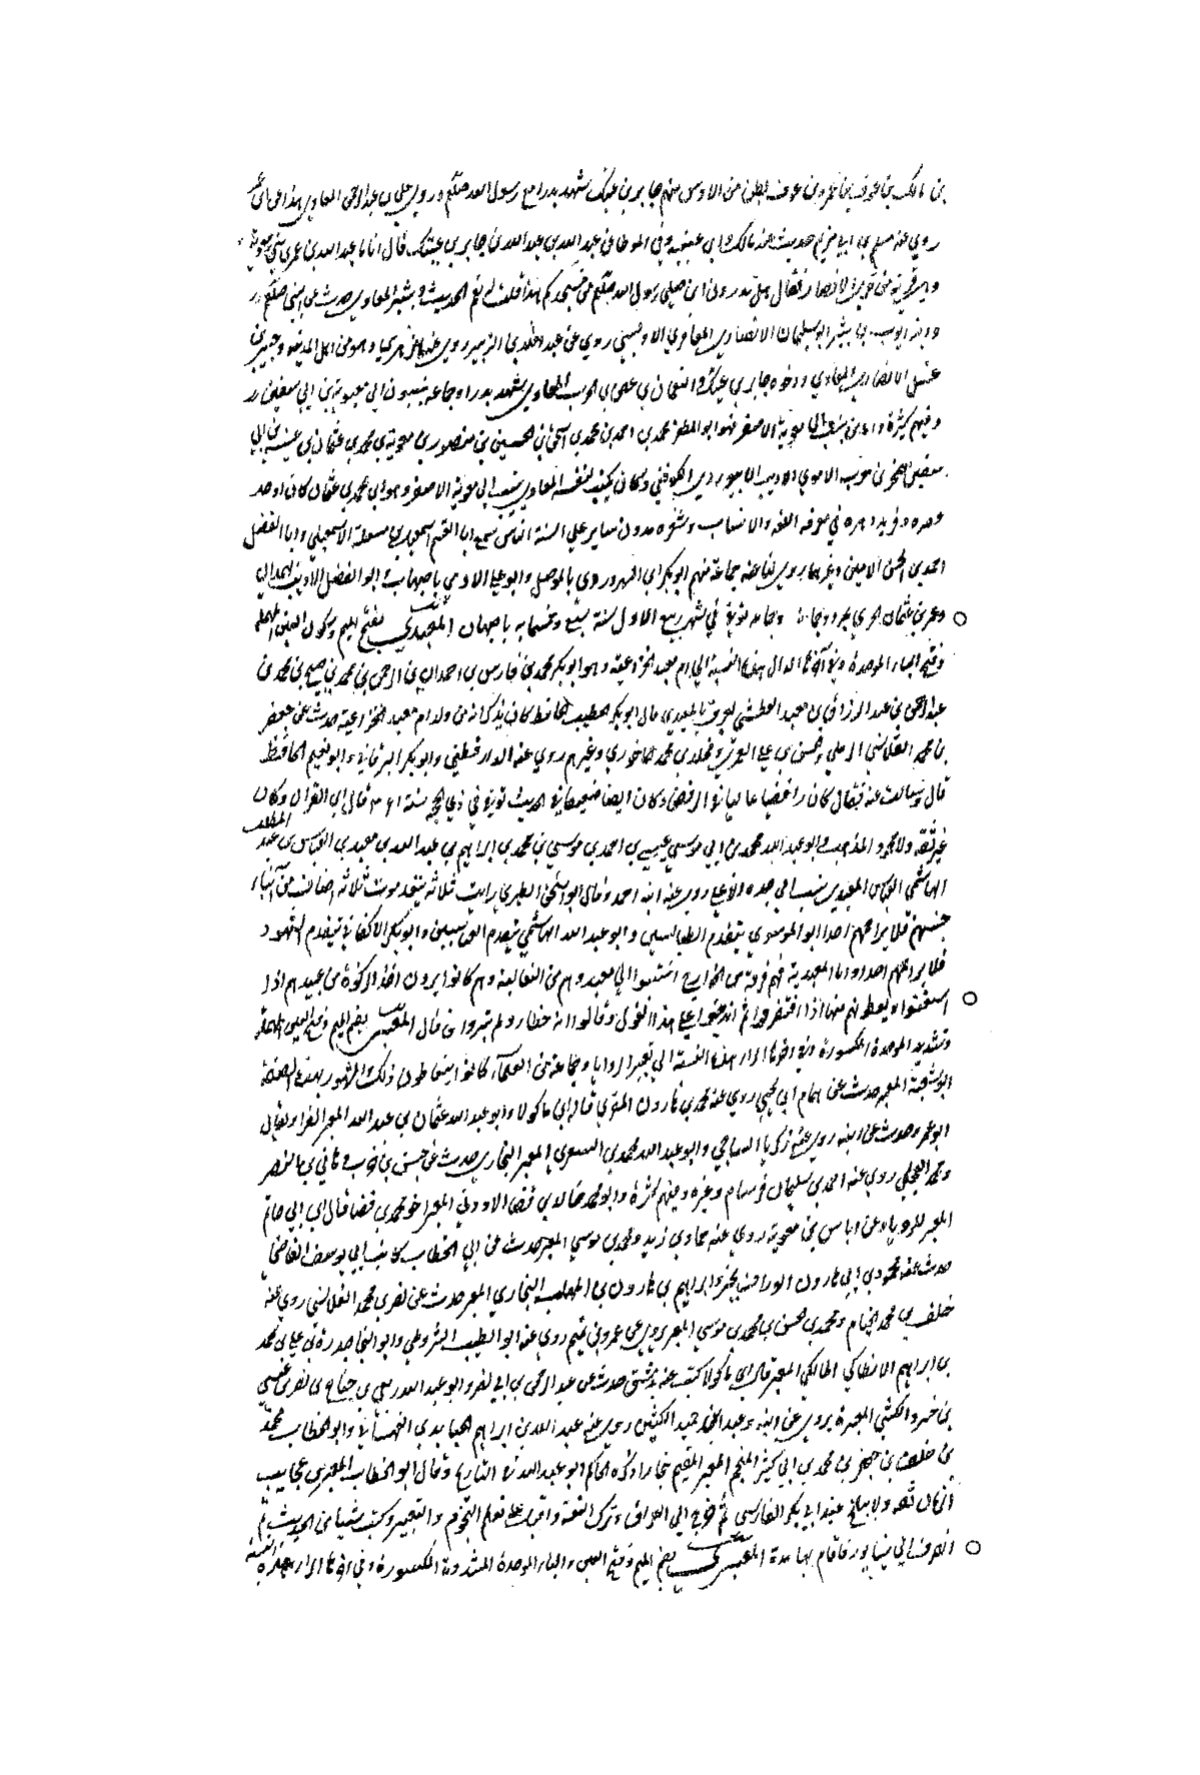 بن مالك بن عوف بن عمرو بن عوف بطن من الاوس منهم جابر بن عتيك شهد بدرا مع رسول الله صلعم وروى علي بن عبد الرحمن المعاوي هذا عن ابن عمر
روي عنه مسلم بن ابي مريم حديث عند مالك وابن عيينة وفي الموطا في عبد الله بن عبد الله بن جابر بن عتيك قال انانا عبد الله بن عمر بني معوية
وهي قرية من قري الانصار فقال هل تدرون اين صلي رسول الله صلعم من مسجدكم هذا قلت نعم الحديث وبشير المعاوي حدث عن النبي صلعم
وايوب بن بشير ابو سليمان الانصاري المعاوي الاوسي روي عن عبد الله بن الزبير روى عنه الزهري وهو من اهل المدينة وجبر بن
عتيك الانصاري المعاوي واخوه جابر بن عتيك والنعمان بن المعاوي شهد بدرا وجماعة ينسبون الي معوية بن ابي سفين
وفيهم كثرة واما من ينسب الي معوية الاصغر فهو ابو المظفر محمد بن احمد بن محمد بن اسحق بن الحسين بن منصور بن معوية بن محمد بن عثمان بن عيينة بن ابي
سفين صخر بن حرب الاموي الاديب الابيوردي الكوفني وكان يكتب لنفسه المعاوي ينسب الي معوية الاصغر وهو ابن محمد بن عثمان كان اوحد
عصره وفريد دهره في معرفة اللغة والانساب وشعره مدون ساير علي السنة الناس سمع ابا القسم اسمعيل بن مسعدة الاسمعيلي وابا الفضل
احمد بن الحسن الامين وغيرهما روي لنا عنه جماعة منهم ابو بكر ابن الشهرزوري بالموصل وابو علي الادمي باصبهان وابو الفضل الاديب بهمدان
وعمر بن عثمان الجنزي بمرو وجماعة توفي في شهر ربيع الاول سنة سبع وخمسماية باصبهان المعبدي بفتح الميم وسكون العين المهملة
وفتح الباء الموحدة وفي آخرها الدال هذه النسبة الي ام معبد الخزاعية وهو ابو بكر محمد بن فارس بن احمد بن عبد الرحمن بن محمد بن صبيح بن محمد بن
عبد الرحمن بن عبد الرزاق بن معبد العطشي يعرف بالمعبدي قال ابو بكر الخطيب الحافظ كان يذكر انه من ولد ام معبد الخزاعية حدث عن جعفر
بن محمد القلانسي الرملي وحسن بن علي ومخلد بن محمد الماخوري وغيرهم روي عنه الدارقطني وابو بكر البرقاني وابو نعيم الحافظ
قال وسالت عنه فقال كان رافضيا غاليا في الرفض وكان ايضا ضعيفا في الحديث توفي في ذي الحجة سنة ٣٦١ قال ابن الفرات وكان
غير ثقة ولا محمود المذهب وابو عبد الله محمد بن ابي موسي عيسي بن احمد بن موسي بن محمد بن ابراهيم بن عبد الله بن معبد بن العباس بن عبد المطلب
الهاشمي العباسي المعبدي ينسب الي جده الاعلي روي عنه ابنه احمد وقال ابو اسحق الطبري رايت ثلاثة يتقدمون ثلاثة اصناف من ابناء
جنسهم فلا يزاحمهم احد ابو الموسوي يتقدم الطالبيين وابو عبد الله الهاشمي يتقدم العباسيين وابو بكر الاكفاني يتقدم الشهود
فلا يزاحمهم احد واما المعبدية فهم فرقة من الخوارج انتسبوا الي معبد وهم من الثعالبة وهم كانوا يرون اخذ الزكوة من عبيدهم اذا
استغنوا ويعطونهم منها اذا افتقروا ثم ان علي هذا القول وقالوا انه خطا ولم يتبروا من قال المعبر بضم الميم وفتح العين المهملة
وتشديد الموحدة المكسورة وفي اخرها الراء هذه النسبة الي تعبير الرويا وجماعة من العلماء كانوا يتعاطون ذلك والمشهور بهذه الصنعة
ابو شعبة المعبر حدث عن همام بن يحيي روي عنه محمد بن هارون المقري قاله ابن ماكولا وابو عبد الله عثمان بن عبد الله المعبر الفراء يقال
ابو عمر وحدث عن ابيه روي عنه زكريا الساجي وابو عبد الله محمد بن المعبر البخاري حدث عن حسن بن وهاني بن النضر
ومحمد العجلي روي عنه احمد بن سليمان وغيره وفيهم كثرة وابو محمد خالد بن فضا الازدي المعبر اخو محمد بن فضا قال ابن ابي حاتم
المعبر للرويا روي عن اياس بن معوية روي عنه حماد بن زيد ومحمد بن موسي المعبر حدث عن ابي الخطاب كاتب ابي يوسف القاضي
حدث عنه محمود بن ابي هارون الوراق وابراهيم بن هارون بن المهلب البخاري المعبر حدث عن نصر بن محمد القلانسي روي عنه
خلف بن محمد الخيام ومحمد بن حسن بن محمد بن موسي المعبر روي عن عمرو بن تميم روي عنه ابو الطيب الشروطي وابو النجا بدرة بن علي بن محمد
بن ابراهيم الانطاكي المالكي المعبر قال ابن ماكولا كتبت عنه بدمشق حدث عن عبد الرحمن بن ابي نصر وابو عبد الله ربعي بن جناح بن نصر بن عيسي
بن خسرو الكشي المعبر روي عن ابيه وعبد بن حميد الكشيين روي عنه عبد الله بن ابراهيم وابو الخطاب محمد
بن خلف بن جعفر بن محمد بن ابي كثير المنجم المعبر المقيم ببخارا ذكره الحاكم ابو عبد الله في التاريخ وقال ابو الخطاب المعبر من عجايب
الزمان تفقه ولا بلخ عند ابي بكر الفارسي ثم خرج الي العراق وترك التفقه واقبل علي تعلم النجوم والتعبير وكتب شيا من الحديث ثم
انصرف الي نيسابور فاقام بها مدة المعبري بضم الميم وفتح العين والباء الموحدة المشددة المكسورة وفي اخرها الراء هذه النسبة